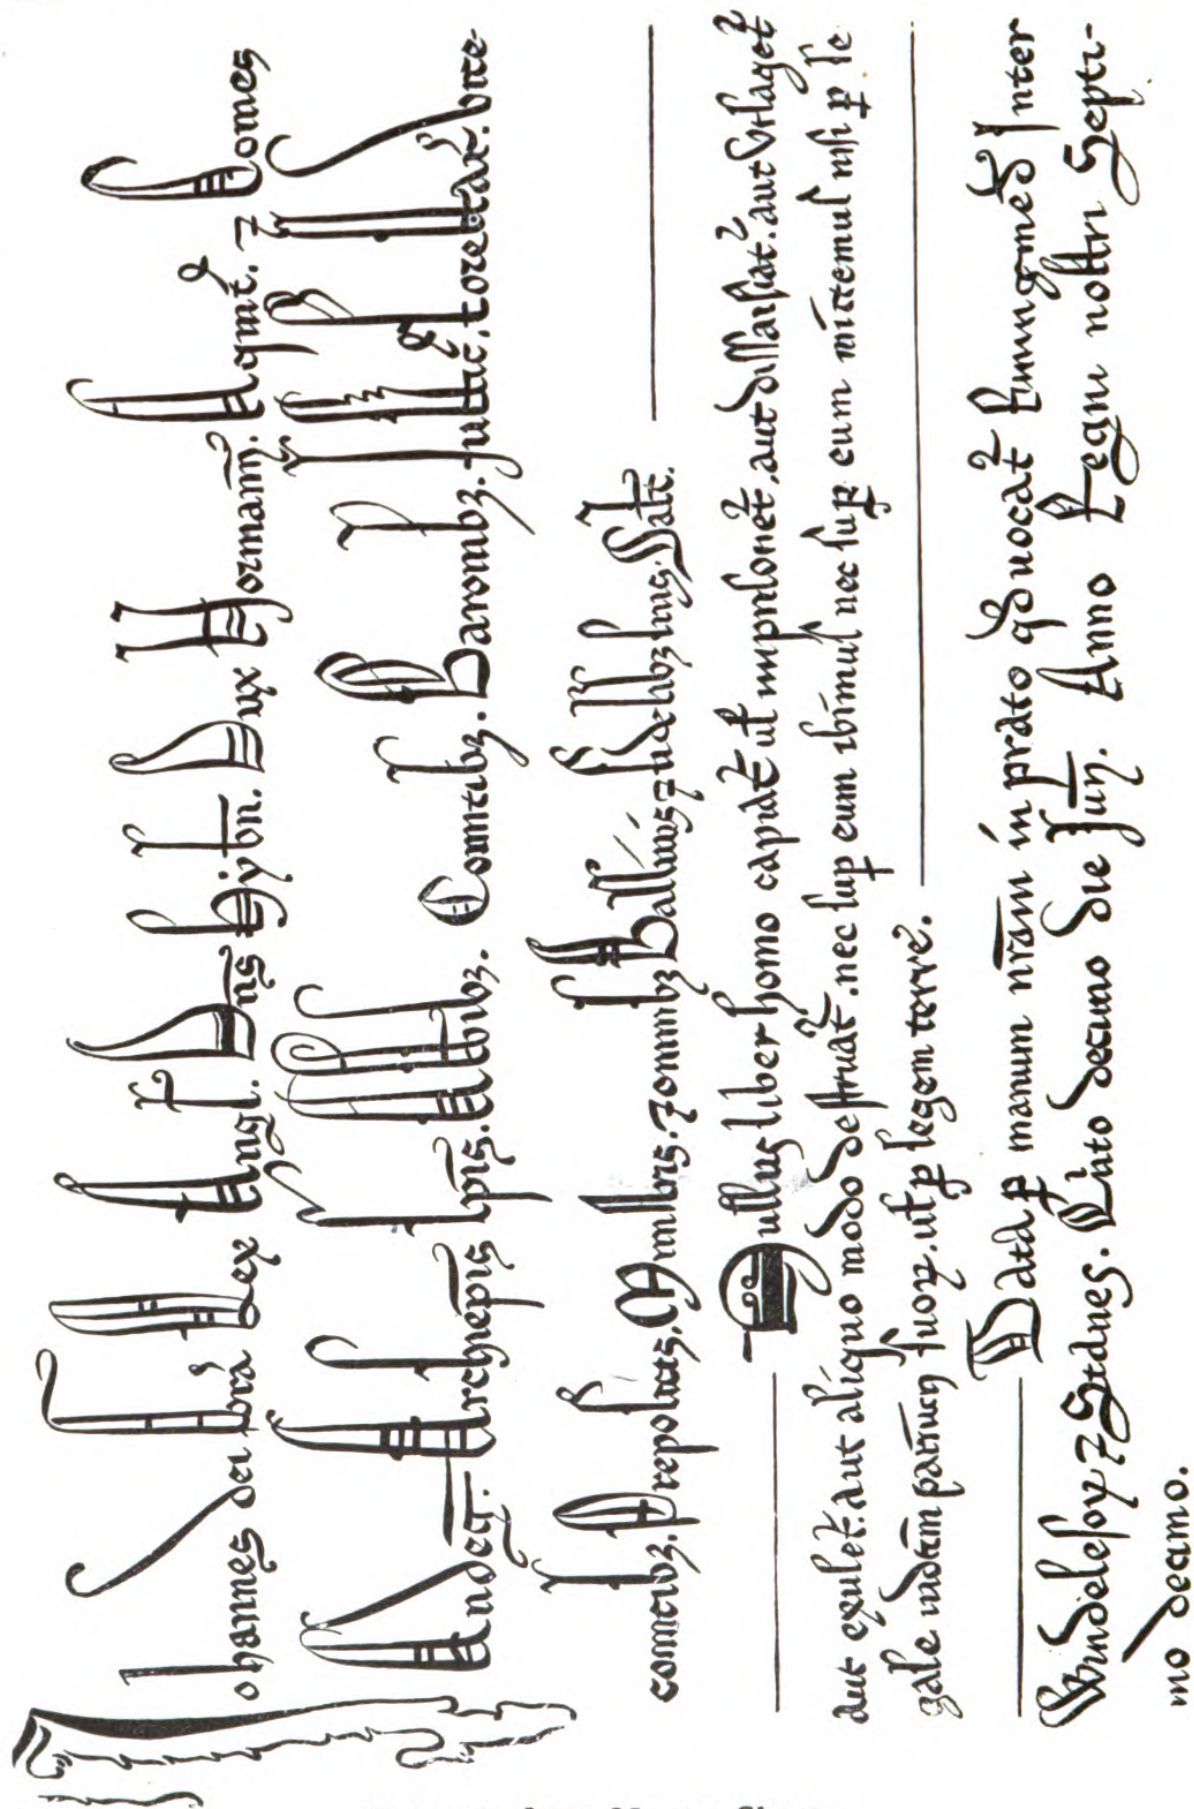 Johannes dei gra Rex Angl. Dns Hybn. Dux Normann. Aquit. ⁊ Comes
Andeg. Archiepis Epis. Abbibz. Comitibz. Baronibz. Justic. forestar. vice-
comitibz. Prepositis. Ministris. ⁊ omnibz Ballivis ⁊ fidelibz suis. Salt.
Nullus liber homo capiat ul imprisonet, aut dissaisiat. aut utlaget
aut exulet. aut aliquo modo destruat. nec sup eum ibimus nec sup eum mittemus nisi p le
gale indicm parium suoꝝ. ul p legem terre.
Data p manum nram in prato qd uocat Runingmed Inter
Windelesoꝝ ⁊ Stanes. Quinto decimo die Jun. Anno Regni nostri Septi-
mo decimo.